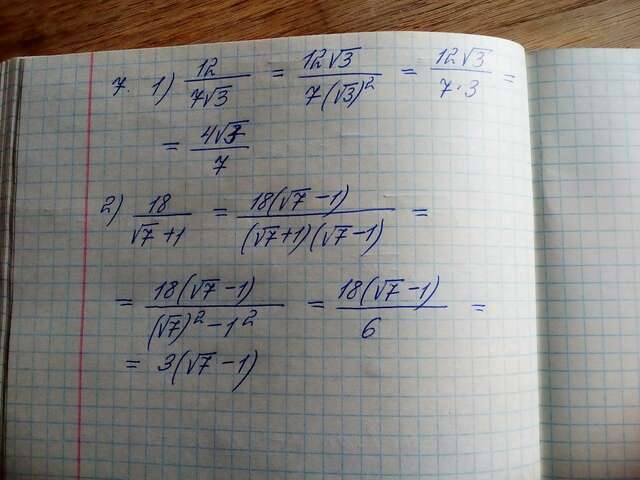 7. 1) 12/(7√3) = 12√3/(7(√3)²) = 12√3/(7·3) =
= 4√3/7
2) 18/(√7+1) = 18(√7-1)/((√7+1)(√7-1)) =
= 18(√7-1)/((√7)²-1²) = 18(√7-1)/6 =
= 3(√7-1)